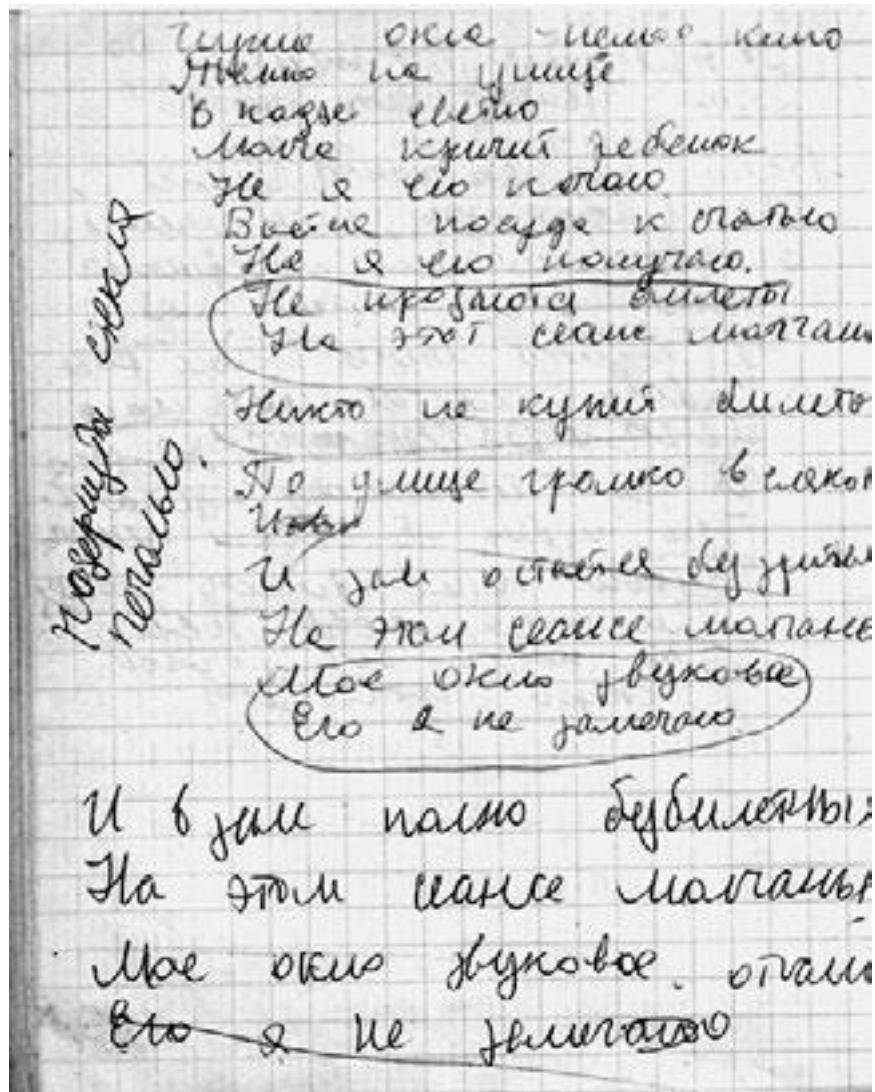 окна немое кино
Темно на улице
В кадре светло
Молча кричит ребенок
Не я его качаю.
посуда к счастью
Не я его получаю.
Не продаются билеты
На этот сеанс молчань
Никто не купит билета
По улице громко в слякот
И зал остается без зрителя
На этом сеансе молчань
Мое окно звуковое
Его я не замечаю
И в зале полно безбилетных
На этом сеансе молчанья
Мое окно звуковое. отчаль
Его я не замечаю
печально.